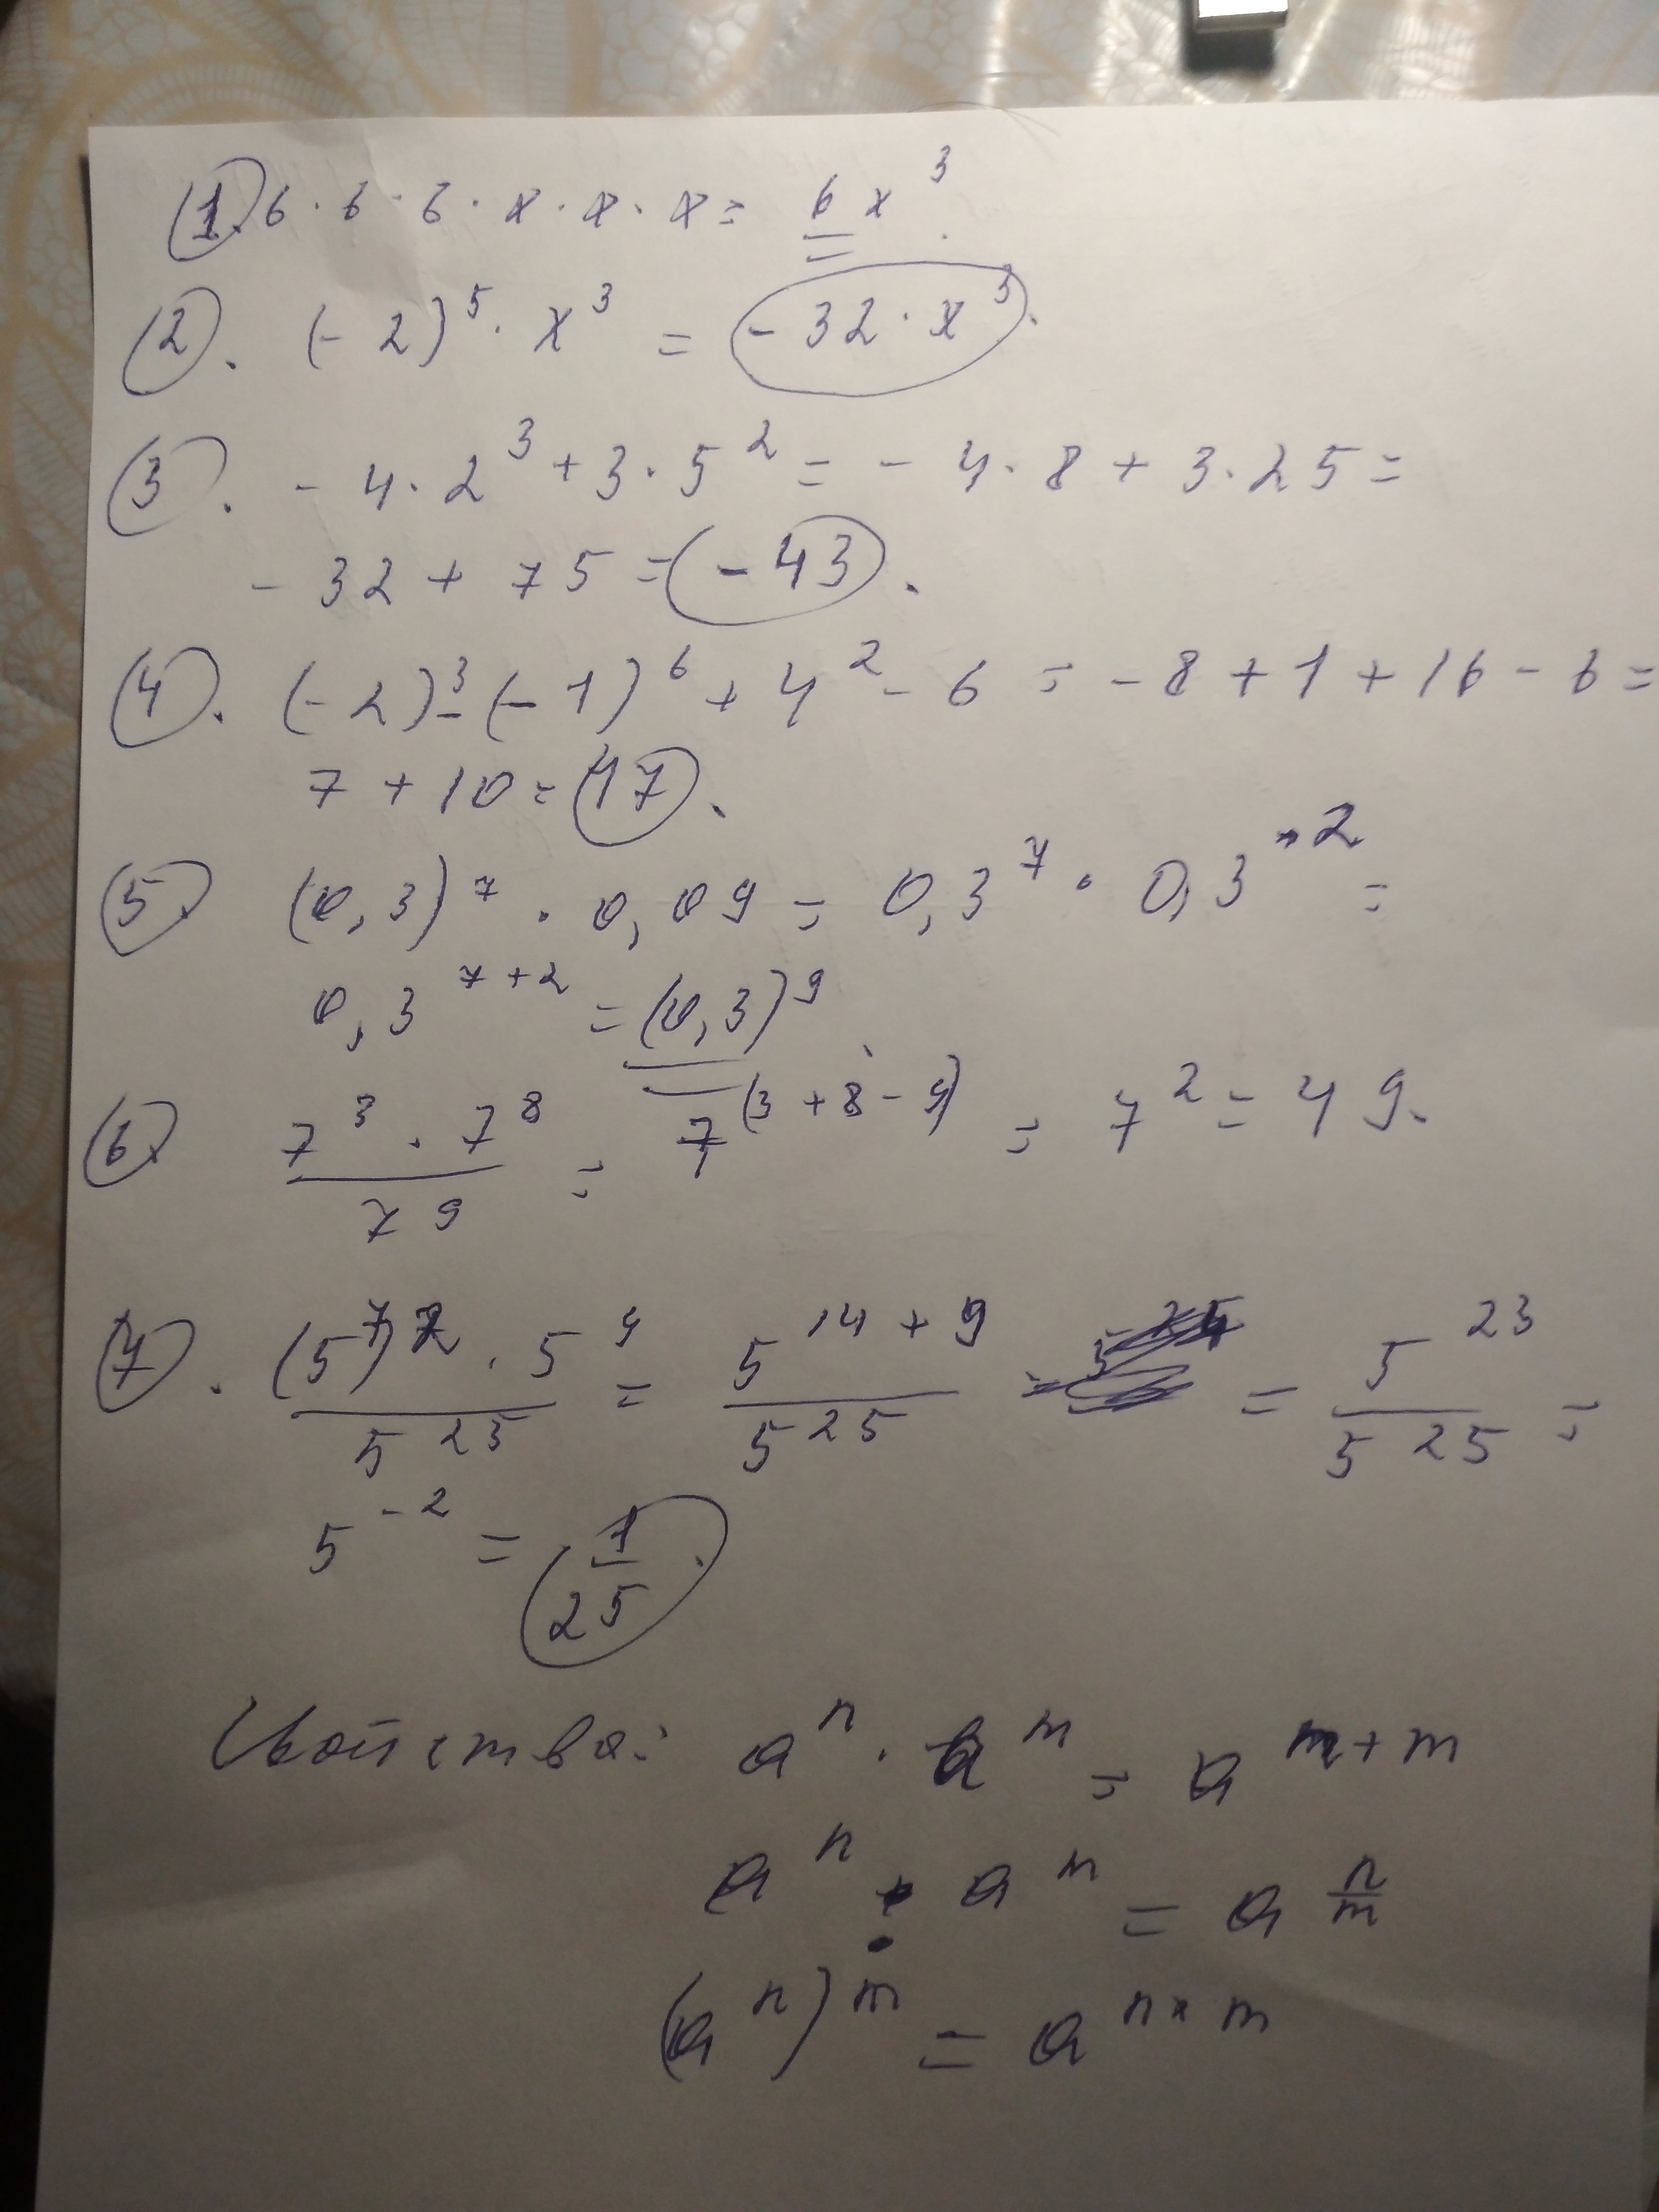 1. 6 · 6 · 6 · x · x · x = 6x³.
2. (-2)⁵ · x³ = -32 · x³.
3. -4 · 2³ + 3 · 5² = -4 · 8 + 3 · 25 =
-32 + 75 = -43.
4. (-2)³ - (-1)⁶ + 4² - 6 = -8 + 1 + 16 - 6 =
7 + 10 = 17.
5. (0,3)⁷ · 0,09 = 0,3⁷ · 0,3² =
0,3⁷⁺² = (0,3)⁹
6. (7³ · 7⁸)/7⁹ = 7^(3 + 8 - 9) = 7² = 49.
7. ((5⁷)² · 5⁹)/5²⁵ = 5¹⁴⁺⁹/5²⁵ = 5²³/5²⁵ =
5⁻² = 1/25.
Свойства: aⁿ · aᵐ = aᵐ⁺ᵐ
aⁿ : aᵐ = a^(n/m)
(aⁿ)ᵐ = a^(n × m)